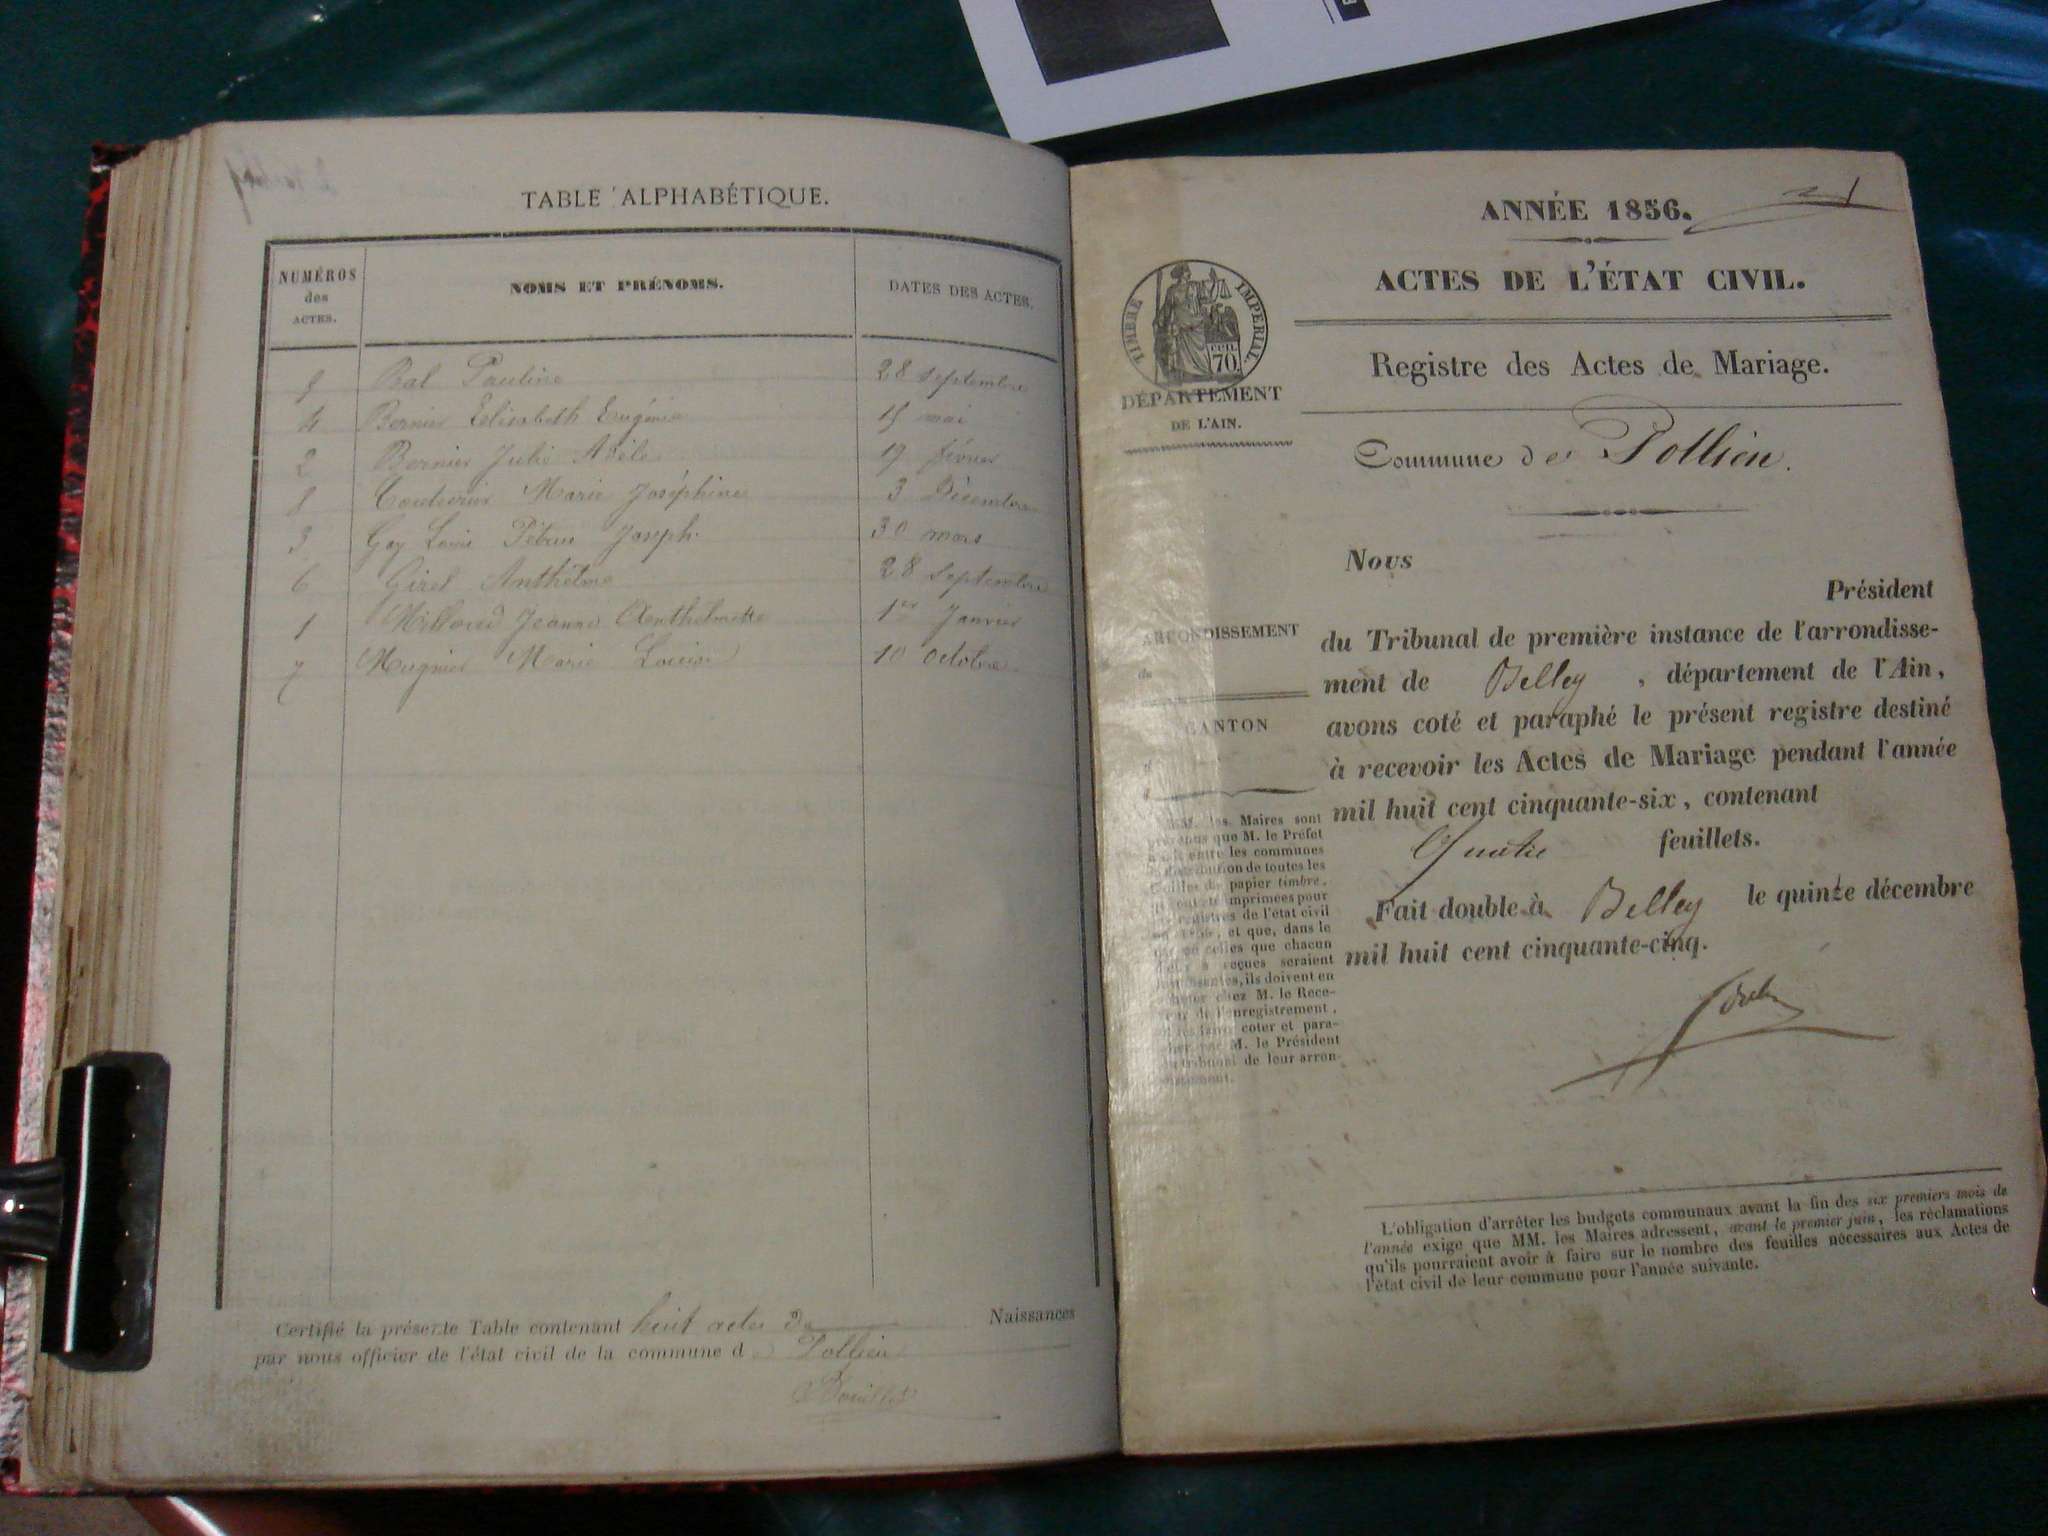 TABLE ALPHABÉTIQUE.
NUMÉROS des ACTES. NOMS ET PRÉNOMS. DATES DES ACTES.
Bal Pauline 28 septembre
4 Bernier Elisabeth Eugénie 15 mai
2 Bernier Julie Adèle 19 février
8 Marie Joséphine 3 Décembre
3 Gay Louis Joseph 30 mars
6 Girel Anthelme 28 septembre
1 Jeanne Anthelmette 1er Janvier
7 Mugnier Marie Louise 10 octobre
Certifié la présente Table contenant huit actes de Naissances
par nous officier de l'état civil de la commune d Pollieu
ANNÉE 1856.
ACTES DE L'ÉTAT CIVIL.
TIMBRE IMPÉRIAL
70
DÉPARTEMENT
DE L'AIN.
Registre des Actes de Mariage.
Commune de Pollieu.
Nous
Président
ARRONDISSEMENT
du Tribunal de première instance de l'arrondisse-
ment de Belley, département de l'Ain,
avons coté et paraphé le présent registre destiné
CANTON
à recevoir les Actes de Mariage pendant l'année
mil huit cent cinquante-six, contenant
Quatre feuillets.
Fait double à Belley le quinze décembre
mil huit cent cinquante-cinq.
MM. les Maires sont
que M. le Préfet
entre les communes
de toutes les
papier timbre,
imprimées pour
registres de l'état civil
et que, dans le
celles que chacun
reçues seraient
ils doivent en
chez M. le Rece-
de l'enregistrement,
coter et para-
M. le Président
tribunal de leur arron-
L'obligation d'arrêter les budgets communaux avant la fin des six premiers mois de
l'année exige que MM. les Maires adressent, avant le premier juin, les réclamations
qu'ils pourraient avoir à faire sur le nombre des feuilles nécessaires aux Actes de
l'état civil de leur commune pour l'année suivante.